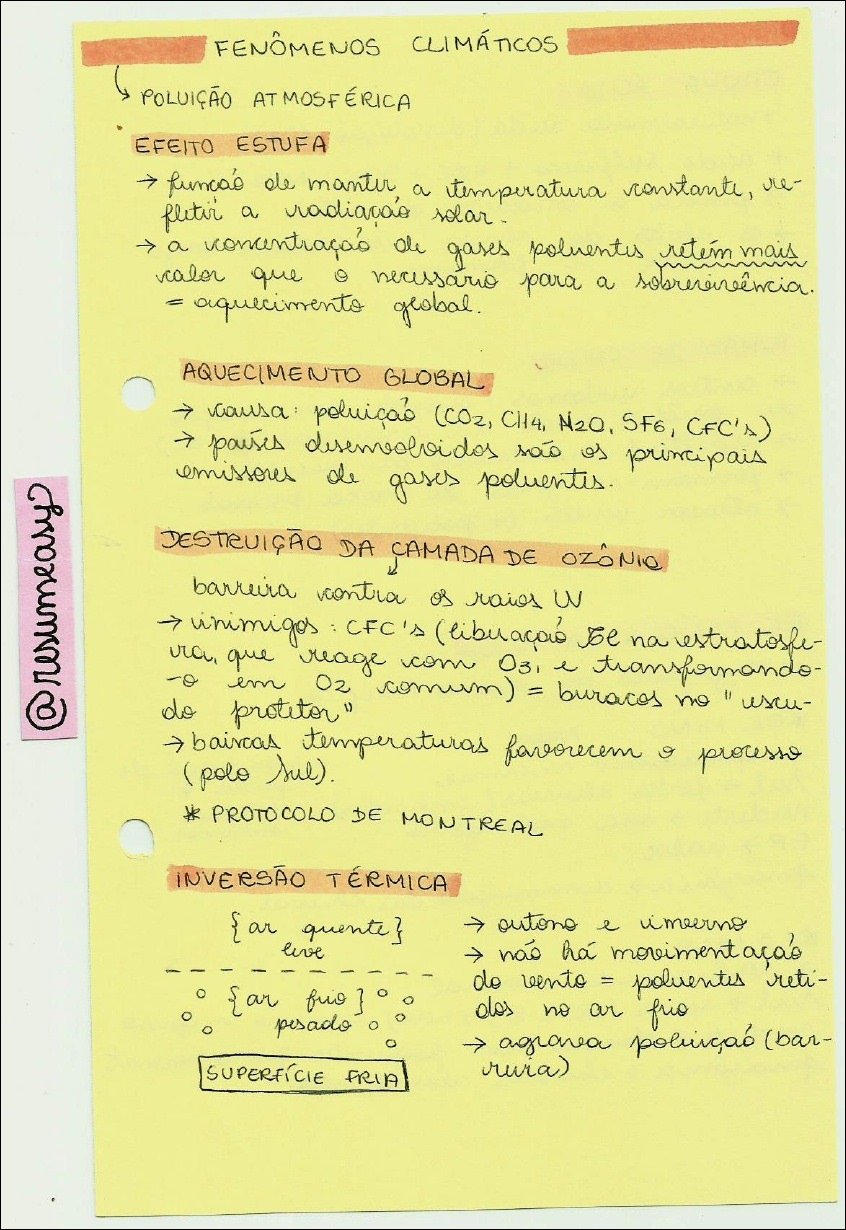 FENÔMENOS CLIMÁTICOS
↳ POLUIÇÃO ATMOSFÉRICA
EFEITO ESTUFA
→ função de manter a temperatura constante, re-
fletir a radiação solar.
→ a concentração de gases poluentes retém mais
calor que o necessário para a sobrevivência.
= aquecimento global.
AQUECIMENTO GLOBAL
→ causa: poluição (CO2, CH4, N2O, SF6, CFC's)
→ países desenvolvidos são os principais
emissores de gases poluentes.
DESTRUIÇÃO DA CAMADA DE OZÔNIO
barreira contra os raios UV
→ inimigos: CFC's (liberação Cl na estratosfe-
ra, que reage com O3, e transformando-
-o em O2 comum) = buracos no "escu-
do protetor"
→ baixas temperaturas favorecem o processo
(polo sul).
* PROTOCOLO DE MONTREAL
INVERSÃO TÉRMICA
{ar quente}
leve
{ar frio}
pesado
SUPERFÍCIE FRIA
→ outono e inverno
→ não há movimentação
do vento = poluentes reti-
dos no ar frio
→ agrava poluição (bar-
reira)
@resumeasy